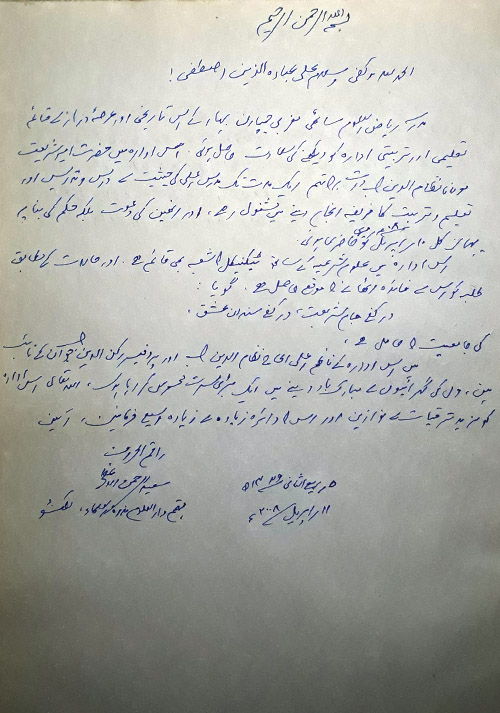 بسم الله الرحمن الرحيم
الحمد للہ وکفی وسلام علی عبادہ الذین اصطفی !
مدرسہ ریاض العلوم ساٹھی مغربی چمپارن بہار کے اس تاریخی اور عرصۂ دراز سے قائم
تعلیمی اور تربیتی ادارہ کو دیکھنے کی سعادت حاصل ہوئی . اس ادارہ میں حضرت امیر شریعت
مولانا نظام الدین صاحب ایک مدت تک صدر اعلی کی حیثیت سے درس و تدریس اور
تعلیم و تربیت کا فریضہ انجام دینے میں مشغول رہے ، اور انھیں کی دعوت بلکہ حکم کی بنا پر
یہاں کل ۱۰ اپریل کو حاضری ہوئی
اس ادارہ میں علوم شرعیہ کے ساتھ ٹیکنیکل شعبہ بھی قائم ہے . اور حالات کے مطابق
طلبہ کو اس سے فائدہ اٹھانے کا موقع حاصل ہے . گویا :
در کفے جام شریعت در کفے سندان عشق .
کی جامعیت حاصل ہے ،
میں اس ادارہ کے ناظم اعلی الحاج نظام الدین صاحب اور پروفیسر رکن الدین جو ان کے نائب
ہیں ، دل کی گہرائیوں سے مبارکباد دینے میں ایک بڑی مسرت محسوس کر رہا ہوں ، اللہ تعالی اس ادارہ
کو مزید ترقیات سے نوازیں اور اس کا دائرہ زیادہ سے زیادہ وسیع فرمائیں ، آمین
راقم الحروف
سعید الرحمن الاعظمی
مہتمم دارالعلوم ندوۃ العلماء ، لکھنؤ
ربیع الثانی ۱۴۲۹ھ
۱۱ اپریل ۲۰۰۸ء